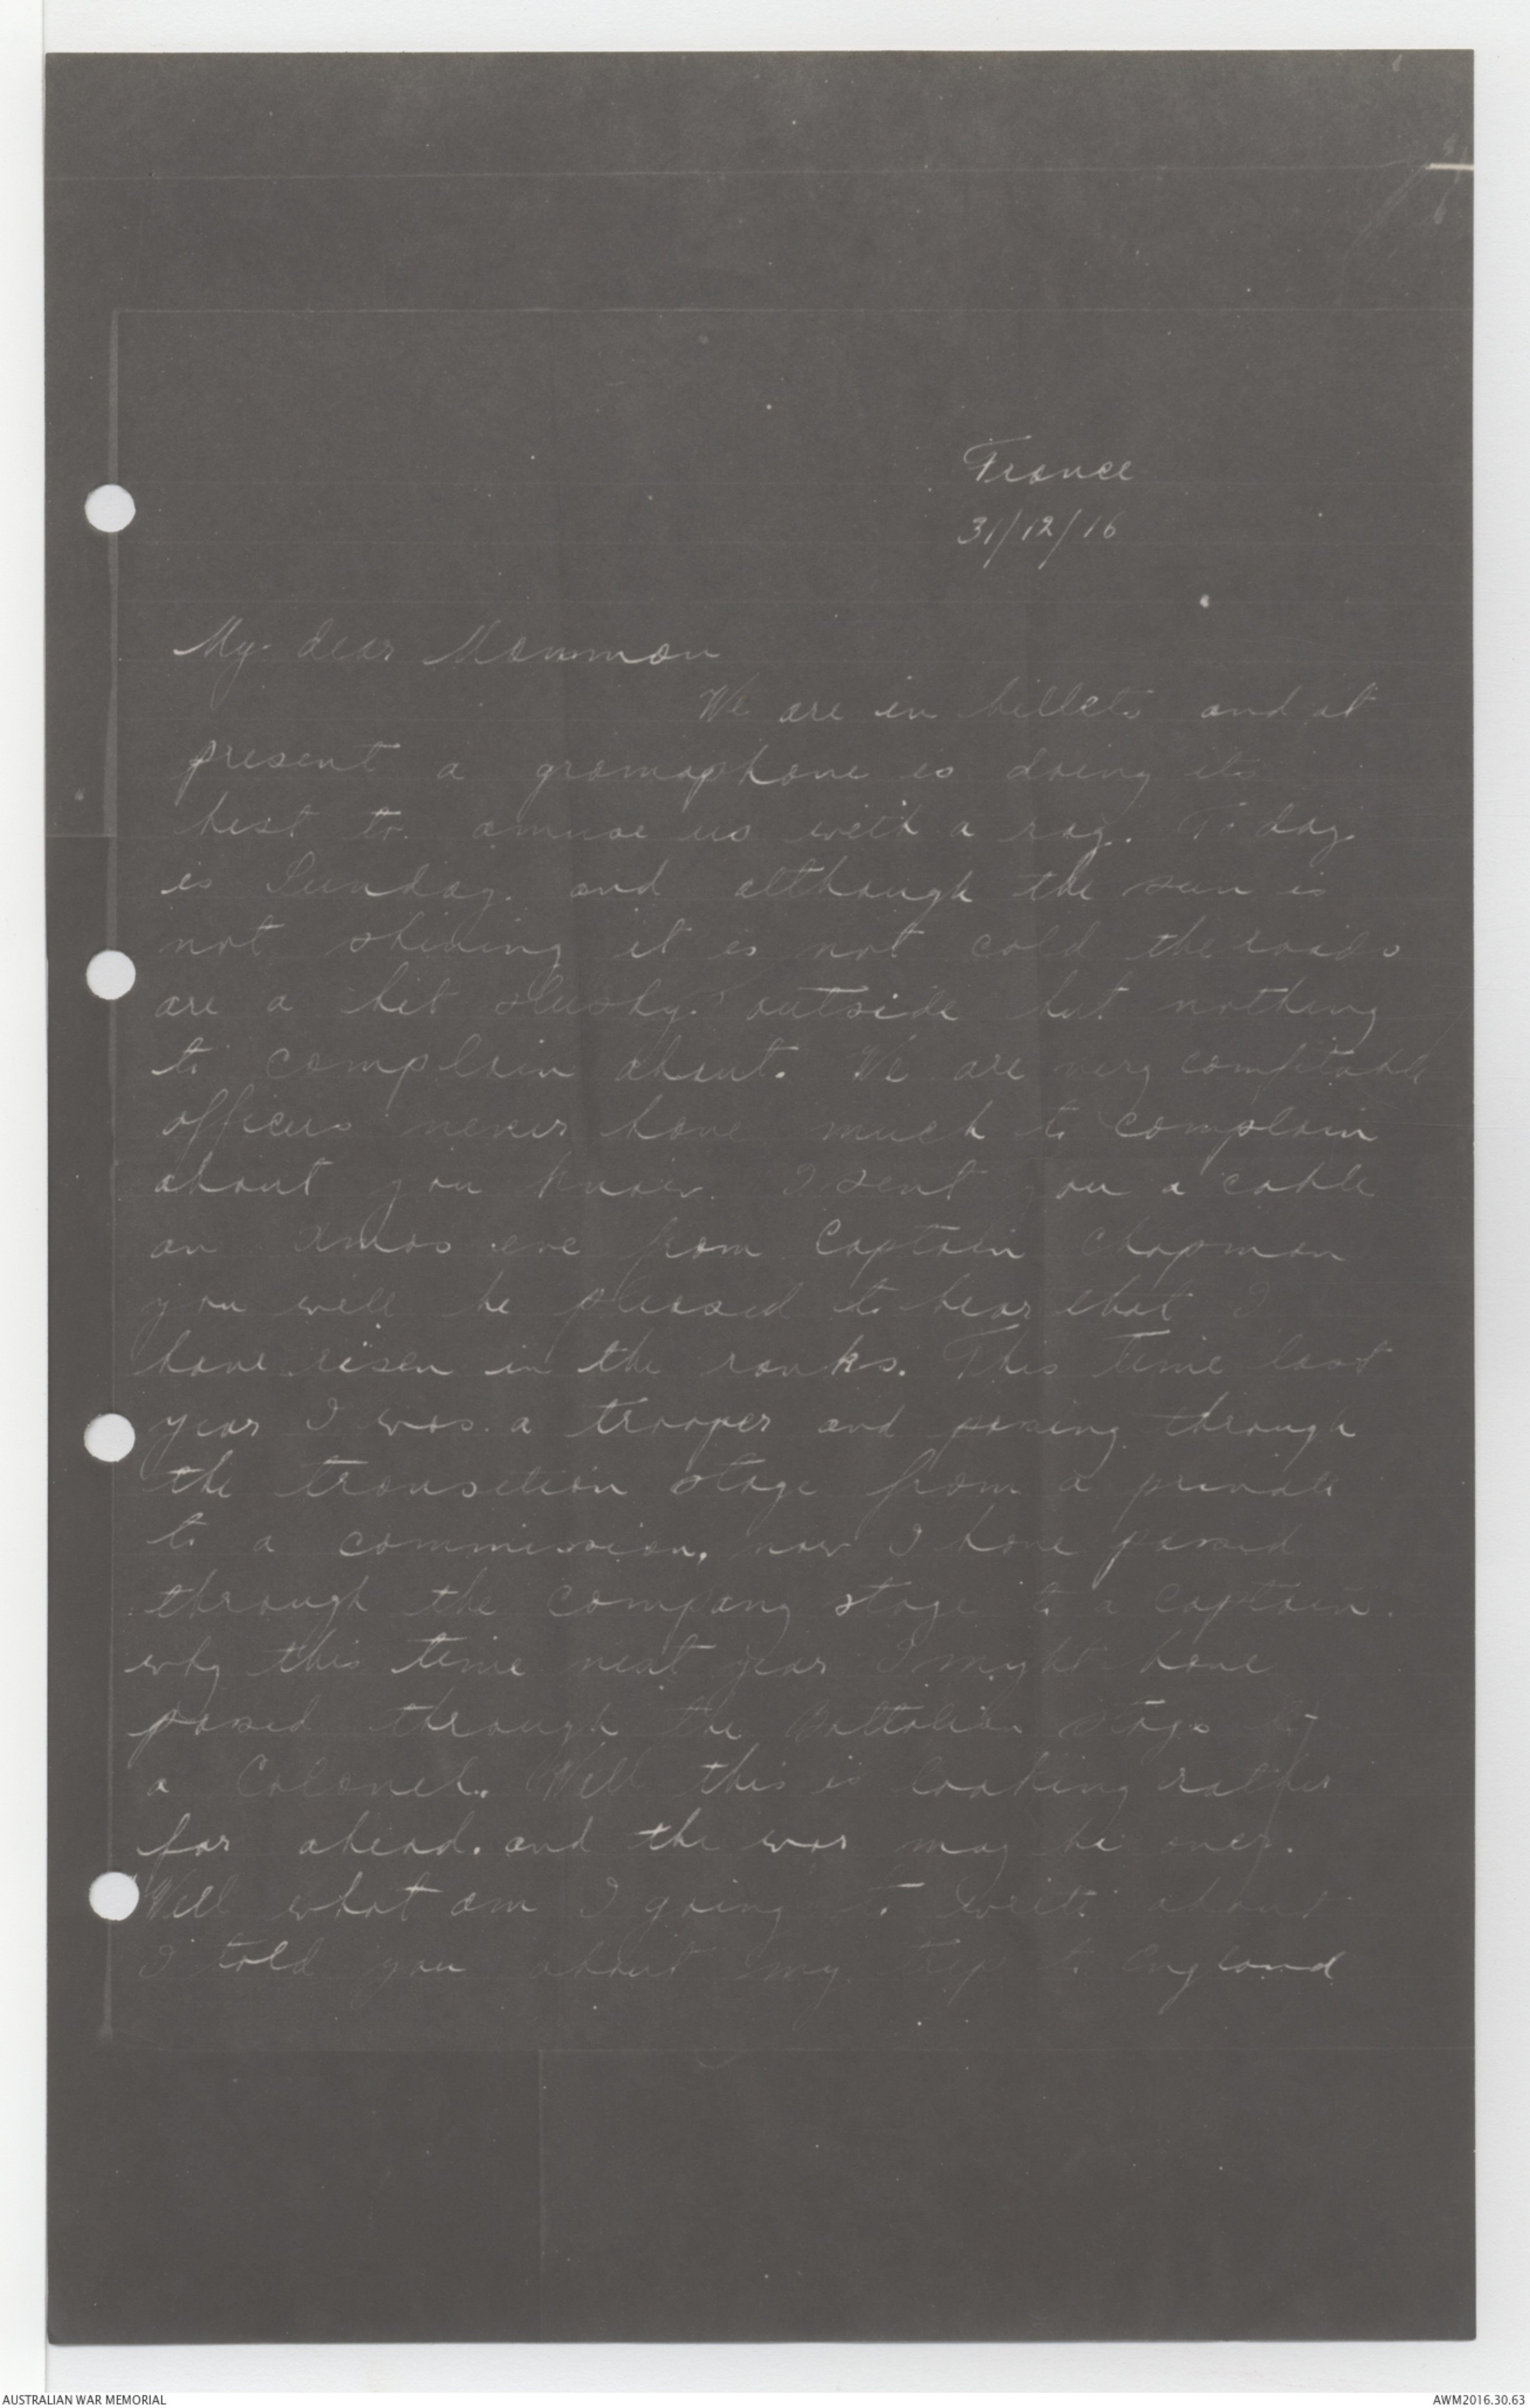 France
31/12/16
My dear Mamman
We are in billets and at
present a gramaphone is doing its
best to amuse us with a rag. Today
is Sunday. and although the sun is
not shining it is not cold the roads
are a bit slushy outside but nothing
to complain about. We are very comfitable
officers never have much to complain
about you know. I sent you a cable
on Xmas eve from Captain Chapman
you will be pleased to hear that I
have risen in the ranks. This time last
year I was a trooper and passing through
the transition stage from a private
to a commission, now I have passed
through the company stage to a captain.
why this time next year I might have
passed through the Battalion stage to
a Colonel. Well this is looking rather
far ahead. and the war may be over.
Well what am I going to write about
I told you about my trip to England
AUSTRALIAN WAR MEMORIAL
AWM2016.30.63